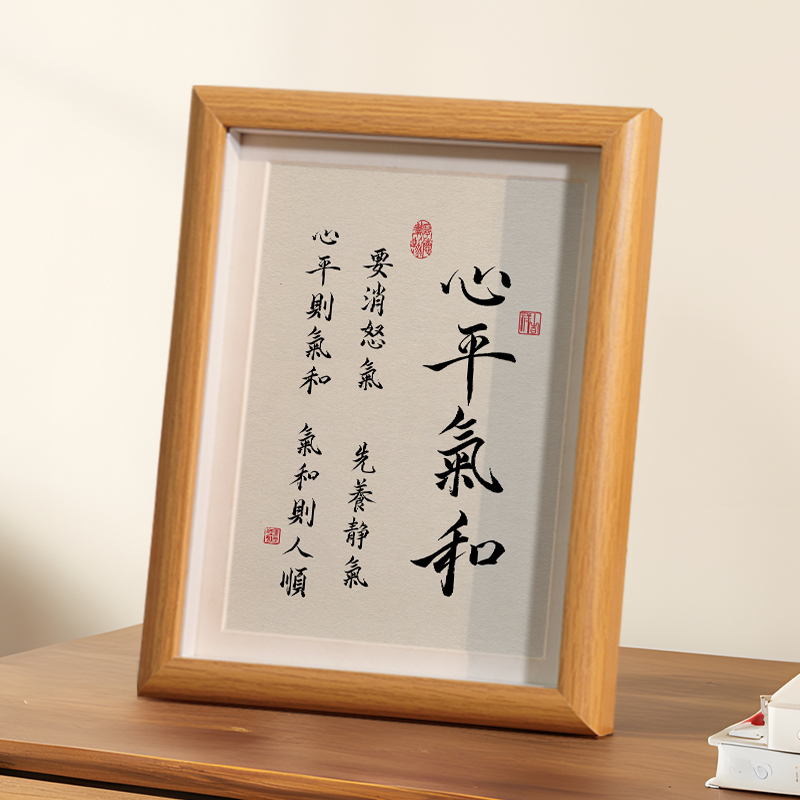 心平氣和
要消怒氣 先養静氣
心平則氣和 氣和則人順